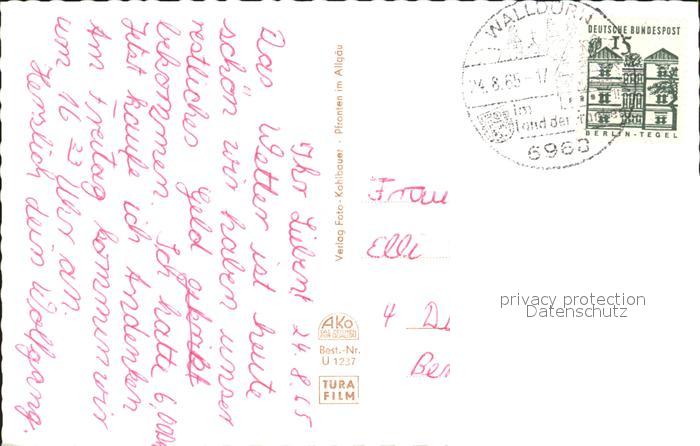 Ihr Lieben! 24.8.65
Das Wetter ist heute
schön wir haben unser
restliches Geld
bekommen. Ich hatte
Jetzt kaufe ich Andenken
Am Freitag kommen wir
um 16 23 Uhr an.
Herzlich dein Wolfgang.
Verlag Foto-Kohlbauer · Pfronten im Allgäu
AKO
Best.-Nr.
U 1237
TURA
FILM
WALLDÜRN
24.8.65-17
im
6968
DEUTSCHE BUNDESPOST
15
BERLIN-TEGEL
Frau
Elli
4 Dü
Ber
privacy protection
Datenschutz